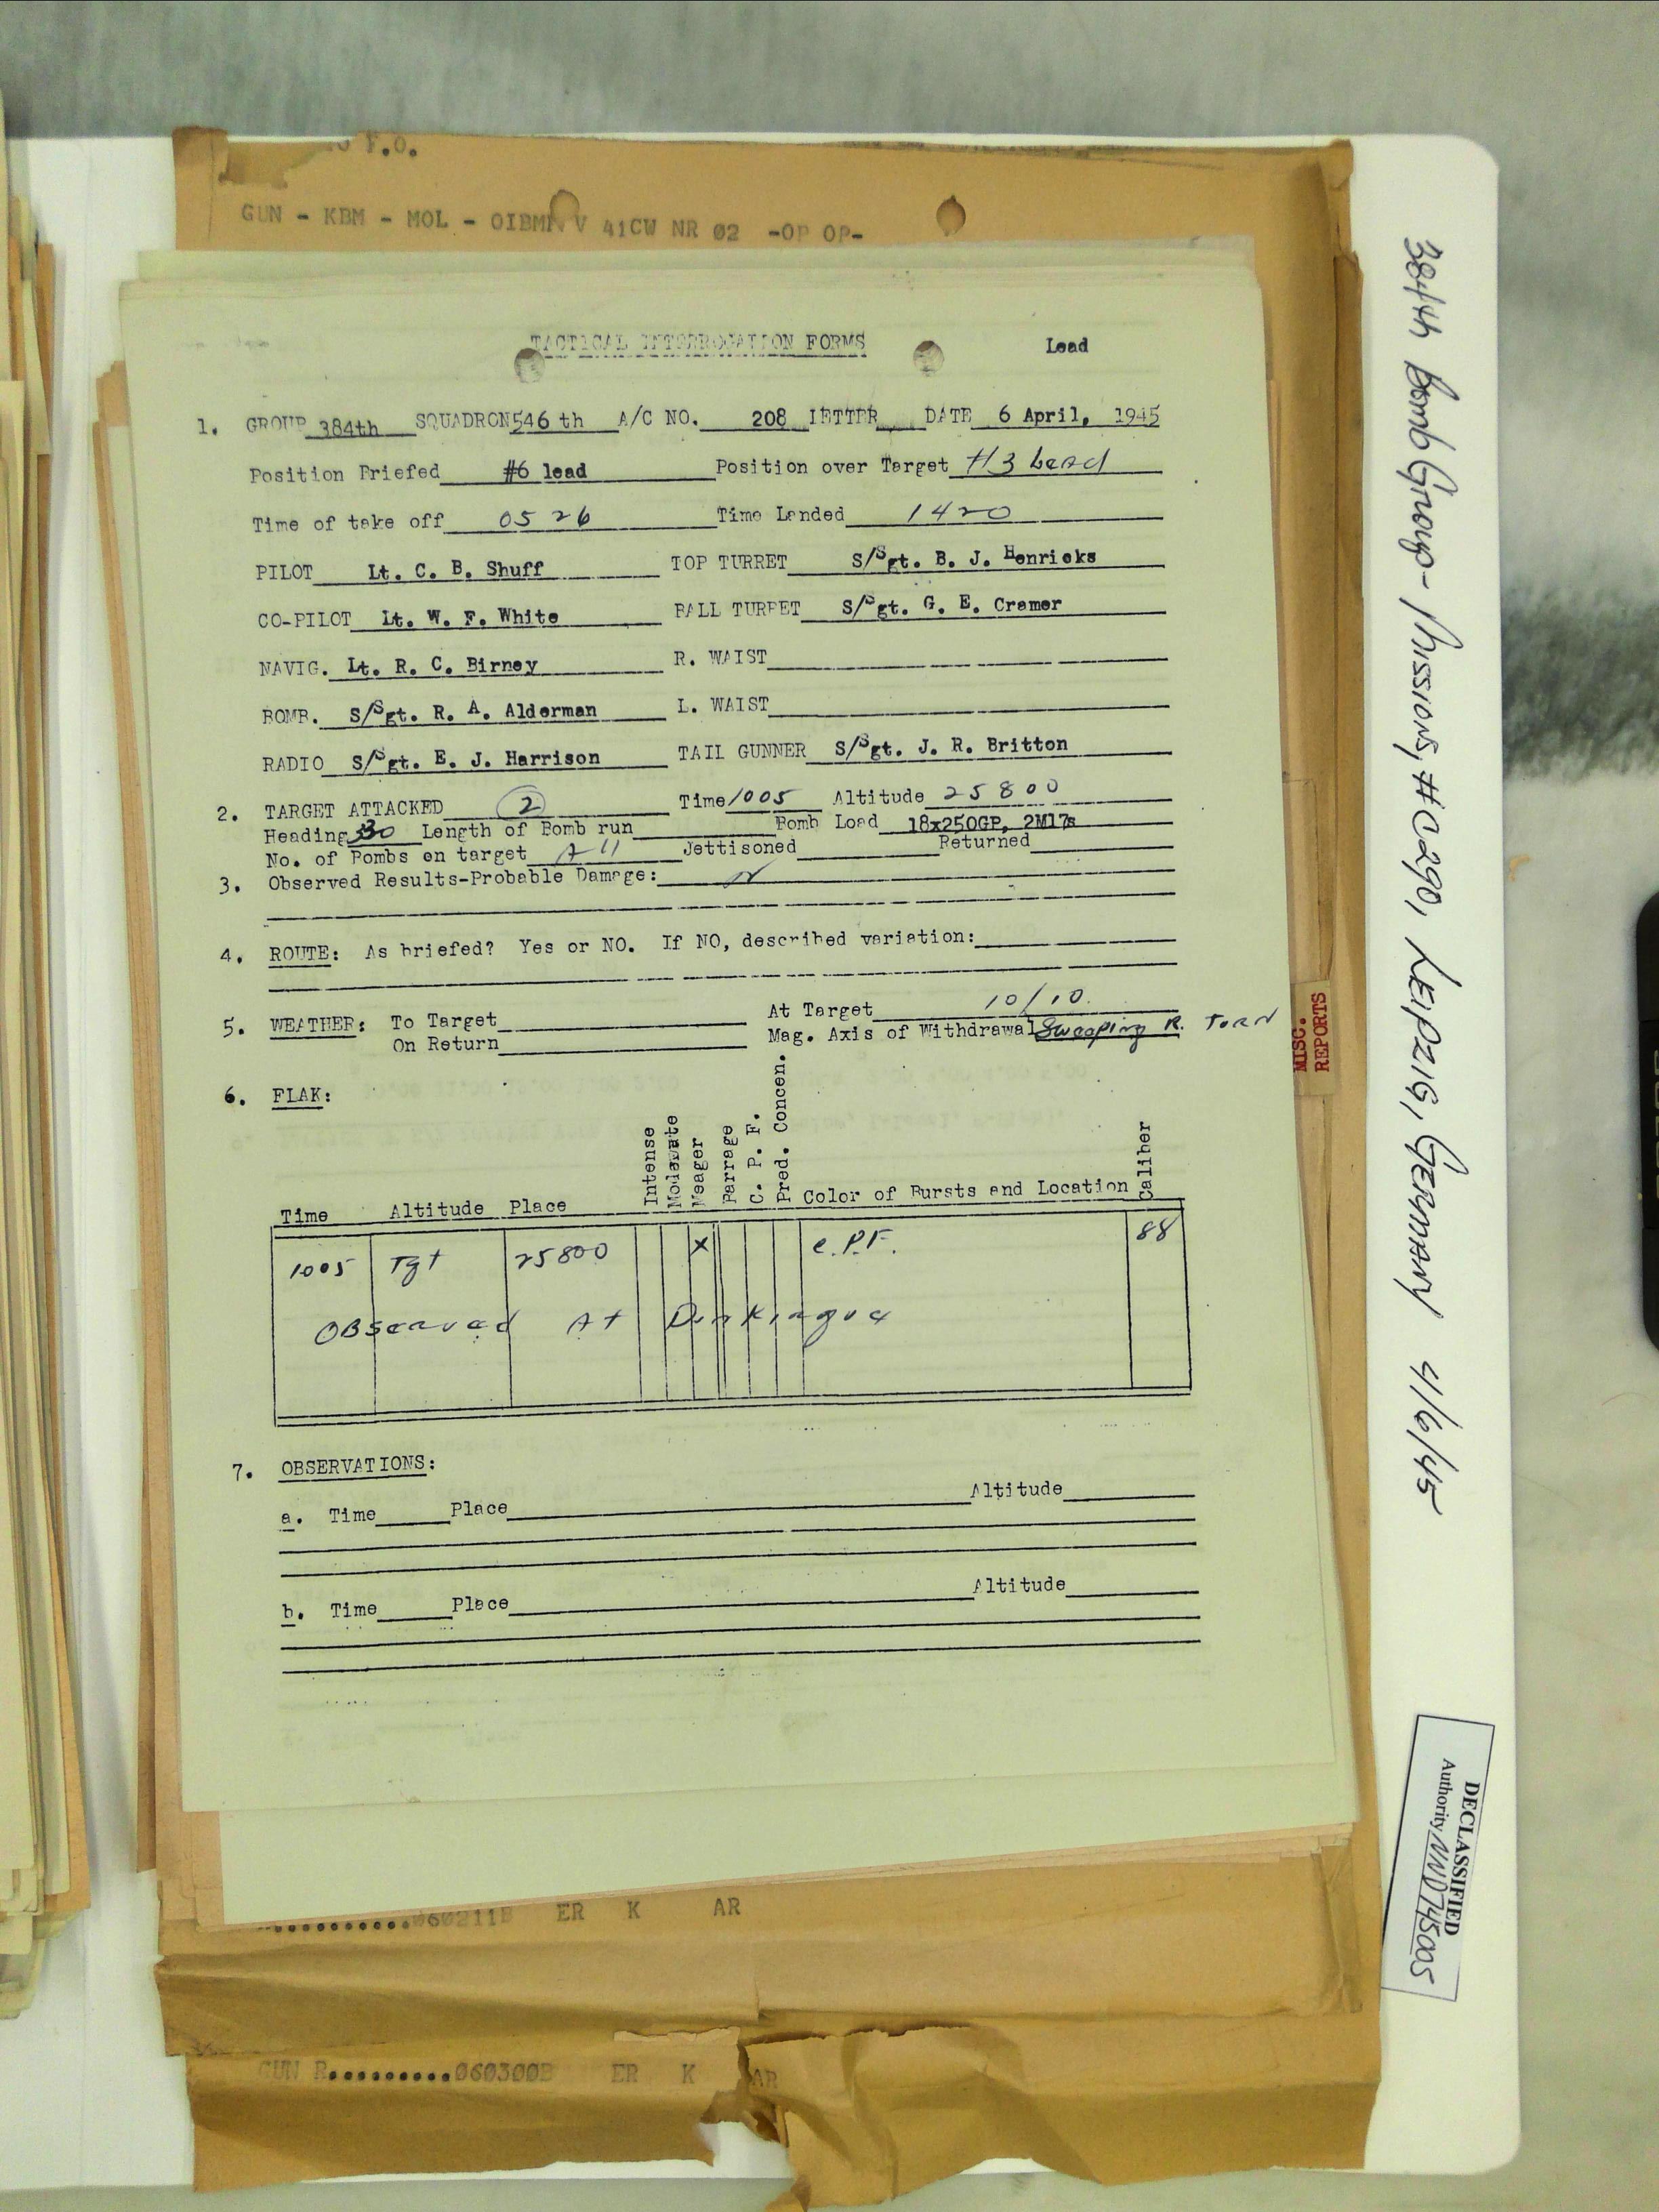 F.O.
GUN - KBM - MOL - OIBMN V 41CW NR 02 -OP OP-
TACTICAL INTERROGATION FORMS Lead
1. GROUP 384th SQUADRON 546 th A/C NO. 208 LETTER DATE 6 April, 1945
Position Briefed #6 lead Position over Target #3 Lead
Time of take off 0526 Time Landed 1420
PILOT Lt. C. B. Shuff TOP TURRET S/Sgt. B. J. Henricks
CO-PILOT Lt. W. F. White BALL TURRET S/Sgt. G. E. Cramer
NAVIG. Lt. R. C. Birney R. WAIST
BOMB. S/Sgt. R. A. Alderman L. WAIST
RADIO S/Sgt. E. J. Harrison TAIL GUNNER S/Sgt. J. R. Britton
2. TARGET ATTACKED 2 Time 1005 Altitude 25800
Heading 330 Length of Bomb run Bomb Load 18x250GP, 2M17s
No. of Bombs on target All Jettisoned Returned
3. Observed Results-Probable Damage:
4. ROUTE: As briefed? Yes or NO. If NO, described variation:
5. WEATHER: To Target At Target 10/10
On Return Mag. Axis of Withdrawal Sweeping R. Turn
6. FLAK:
Time Altitude Place Intense Moderate Meager Barrage C. P. F. Pred. Concen. Color of Bursts and Location Caliber
1005 Tgt 25800 x C.P.F. 88
Observed At
7. OBSERVATIONS:
a. Time Place Altitude
b. Time Place Altitude
060211B ER K AR
GUN R.........060300B ER K AR
MISC. REPORTS
384th Bomb Group - Missions, #0290, LEIPZIG, GERMANY 4/6/45
DECLASSIFIED
Authority NND745005